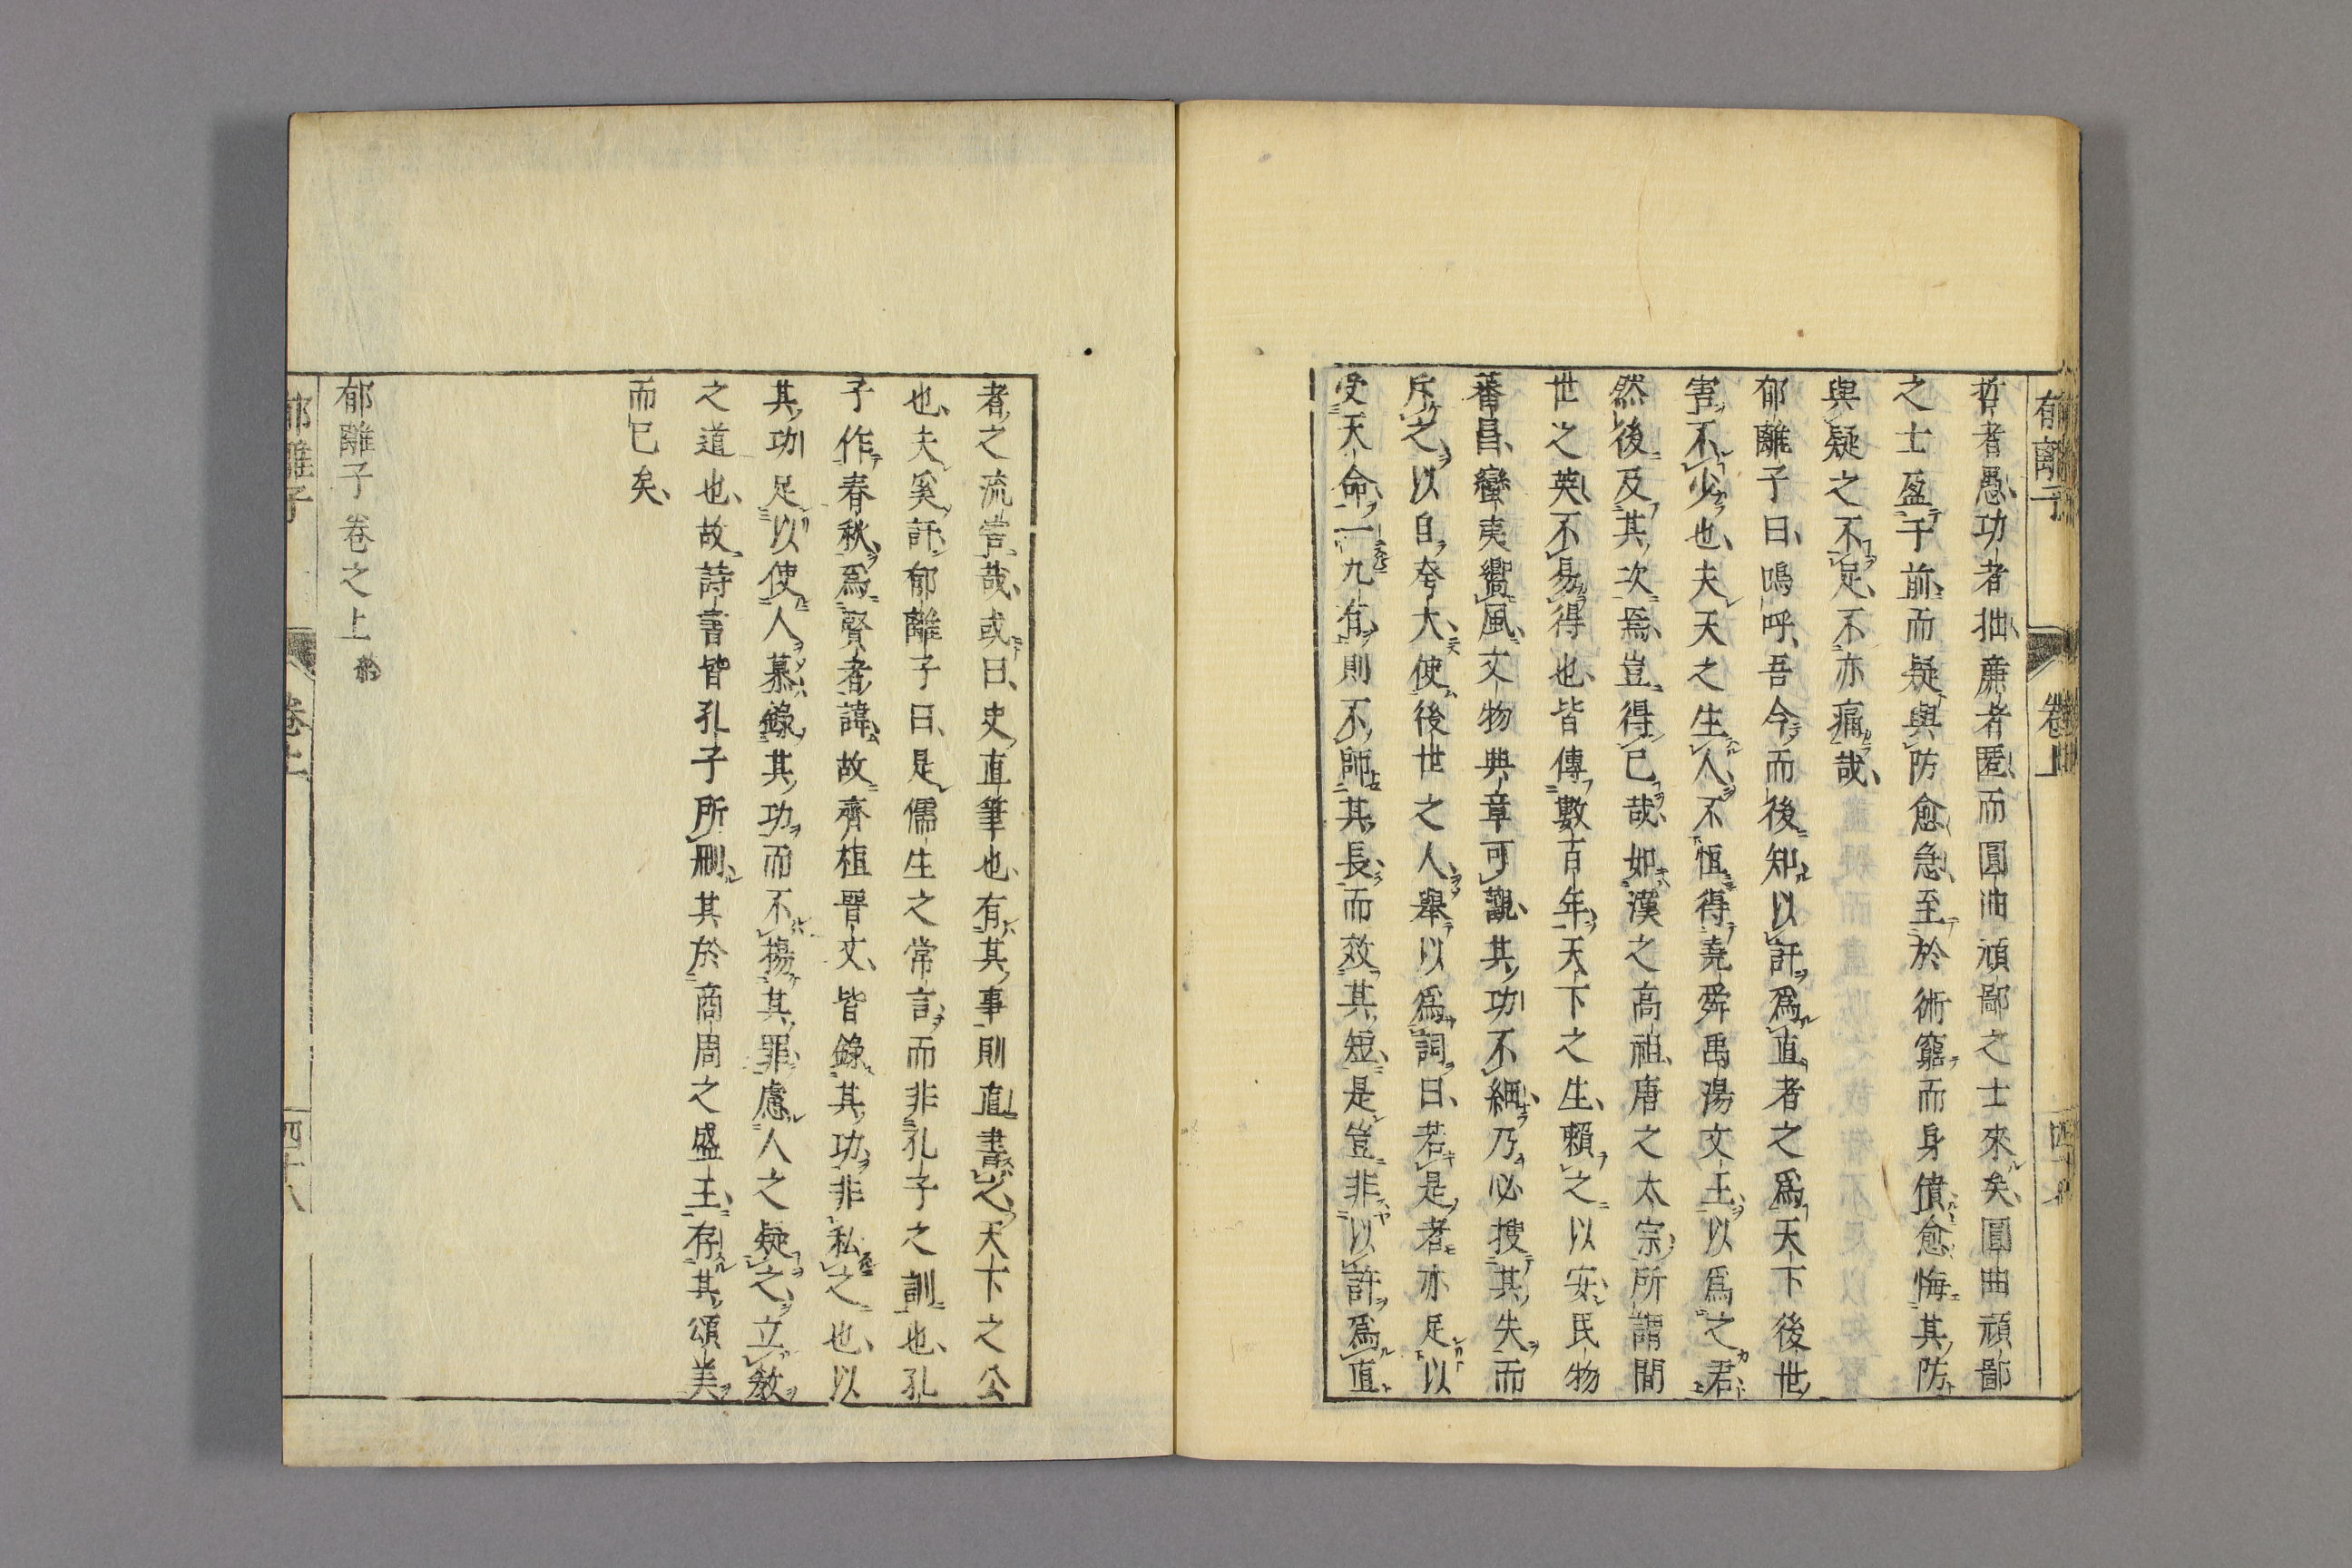 郁離子
卷上
哲者愚功者拙廉者匿而圓曲頑鄙之士來矣圓曲頑鄙
之士盈于前而疑與防愈急至於術窮而身僨愈悔其防
與疑之不足不亦痛哉
郁離子曰嗚呼吾今而後知以訐爲直者之爲天下後世
害不少也夫天之生人不恒得堯舜禹湯文王以爲之君
然後及其次焉豈得已哉如漢之高祖唐之太宗所謂間
世之英不易得也皆傳數百年天下之生賴之以安民物
蕃昌蠻夷嚮風文物典章可觀其功不細乃必搜其失而
斥之以自夸大使後世之人舉以爲詞曰若是者亦足以
受天命一九有則不師其長而效其短是豈非以訐爲直
者之流害哉或曰史直筆也有其事則直書之天下之公
也夫奚訐郁離子曰是儒生之常言而非孔子之訓也孔
子作春秋爲賢者諱故齊桓晉文皆錄其功非私之也以
其功足以使人慕錄其功而不揚其罪慮人之疑之立教
之道也故詩書皆孔子所刪其於商周之盛王存其頌美
而已矣
郁離子卷之上終
郁離子
卷上
四十八